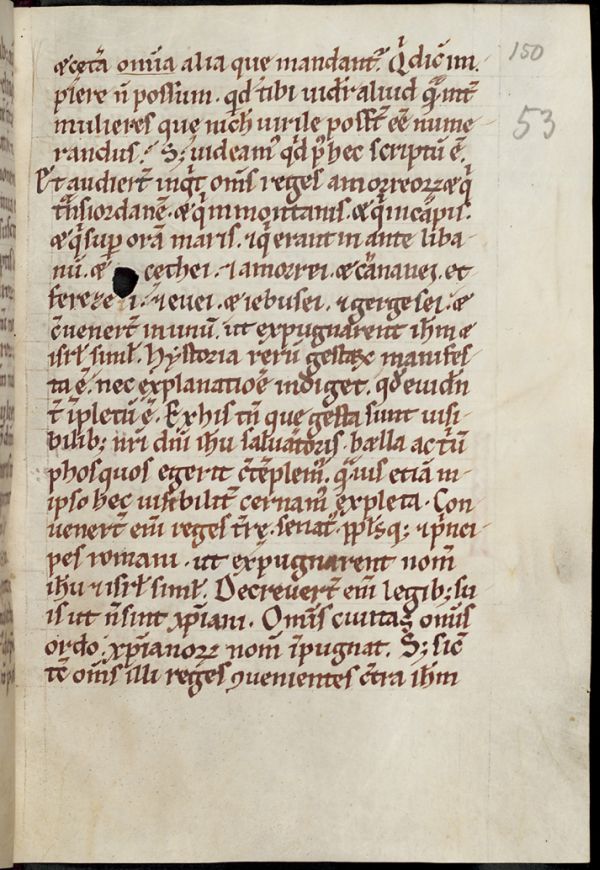 & cet̃a om̃ia alia que mandant᷑. Q̇ dic̄ im
plere ñ possum. qd̃ tibi uidet̃ aliud q̃ᷓ int̃
mulieres que nich̃ uirile poss̃t ẽe nume
randus? S; uideam᷒ qd̃ p̃ hec scriptũ ẽ.
Et audier̃t inq̇t om̃s reges amorreoꝝ & q̇
t̃nsiordanẽ. & q̇ in montanis. & q̇ in cãpis.
& q̇ sup̃ orã maris. & q̇ erant in ante liba
nũ. & cethei. & amorrei. & cãnanei. et
ferezei. & euei. & iebusei. & gergesei. &
c̃uener̃t in unũ. ut expugnarent ih̃m &
isrl̃ simł. Hystoria rerũ gestaꝝ manifes
ta ẽ. nec explanatiõe indiget. qd̃ euidñ
t̃ ĩpletũ ẽ. Ex his tñ que gesta sunt uisi
bilib; nr̃i dñi ih̃u saluatoris. bælla ac t̃ũ
phos quos egerit c̃tẽplem᷒. q̃ᷓuis etiã in
ipso hec uisibilit̃ cernam᷒ expleta. Con
uener̃t eni᷒ reges t̃rę. senat᷒. ppl̃sq; & p̃nci
pes romani. ut expugnarent nom̃
ih̃u & isrl̃ simł. Decreuer̃t eni᷒ legib; su
is ut ñ sint xp̃iani. Om̃is ciuitas om̃is
ordo xp̃ianoꝝ nom̃ ĩpugnat. S; sic̃
t̃c om̃s illi reges ꝯuenientes c̃tra ih̃m
150
53